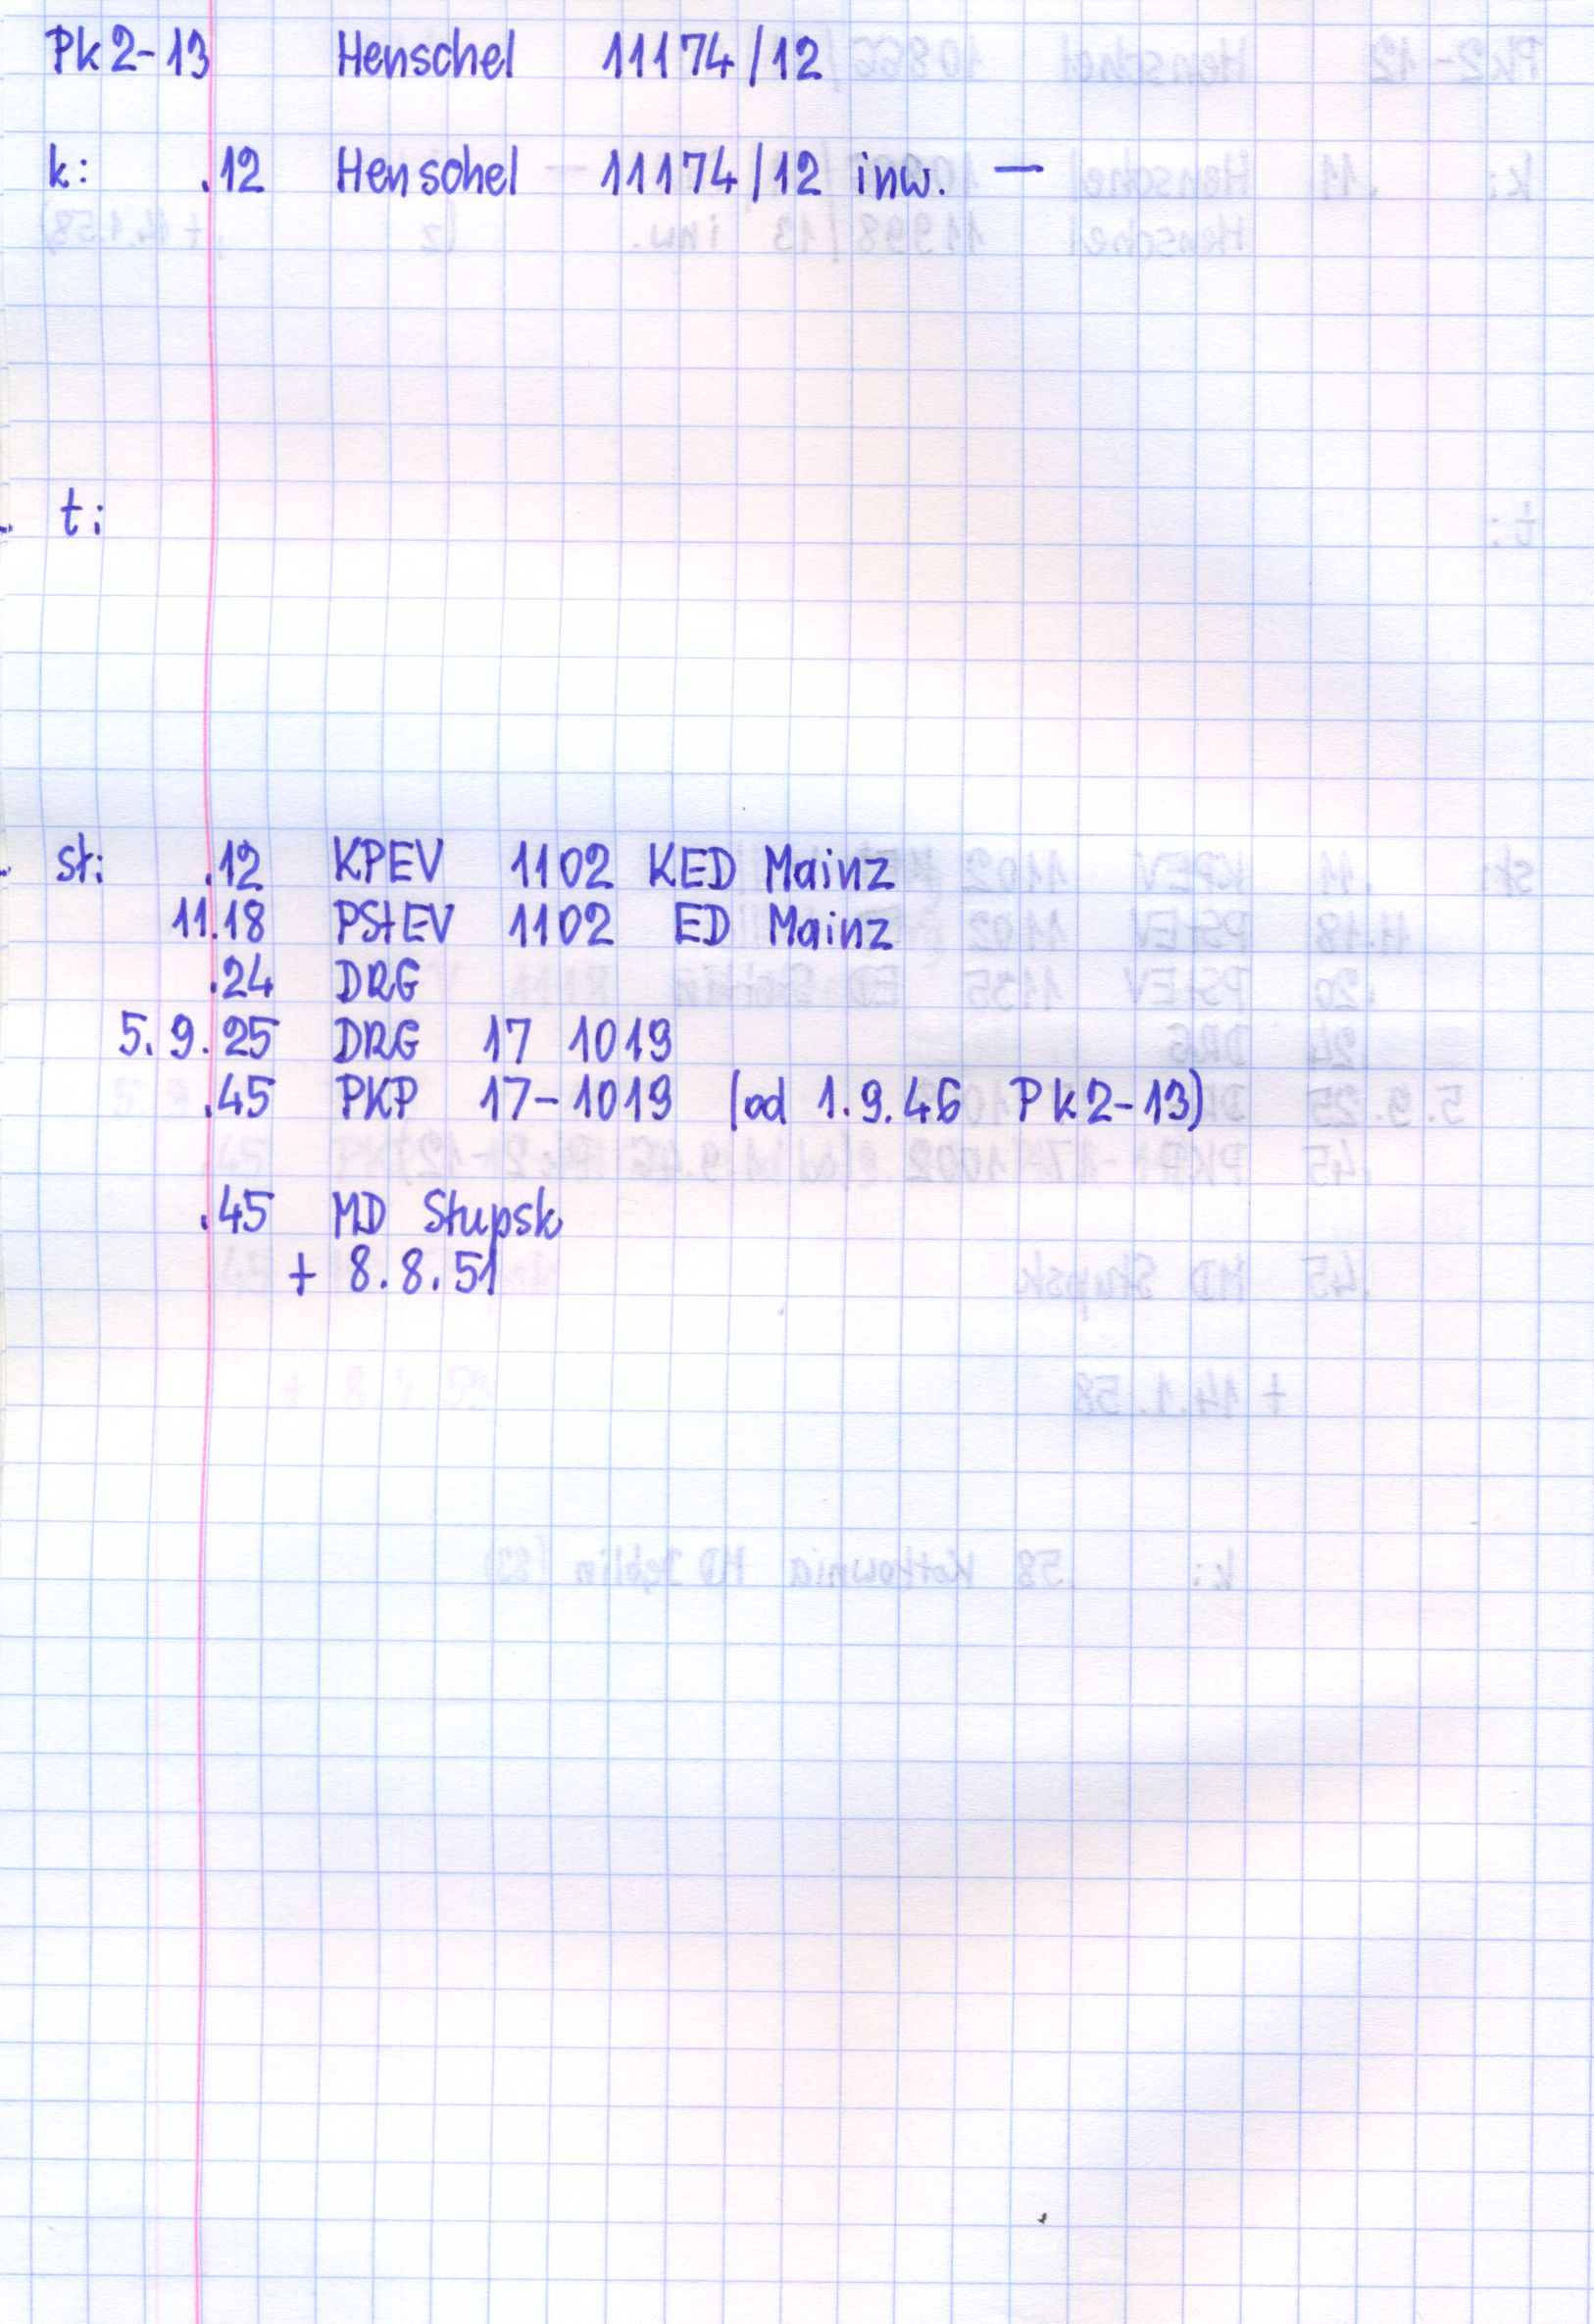 Pk2-13 Henschel 11174/12
k: .12 Henschel 11174/12 inw. —
t:
st: .12 KPEV 1102 KED Mainz
11.18 PStEV 1102 ED Mainz
.24 DRG
5.9.25 DRG 17 1019
.45 PKP 17-1019 (od 1.9.46 Pk2-13)
.45 MD Słupsk
+ 8.8.51